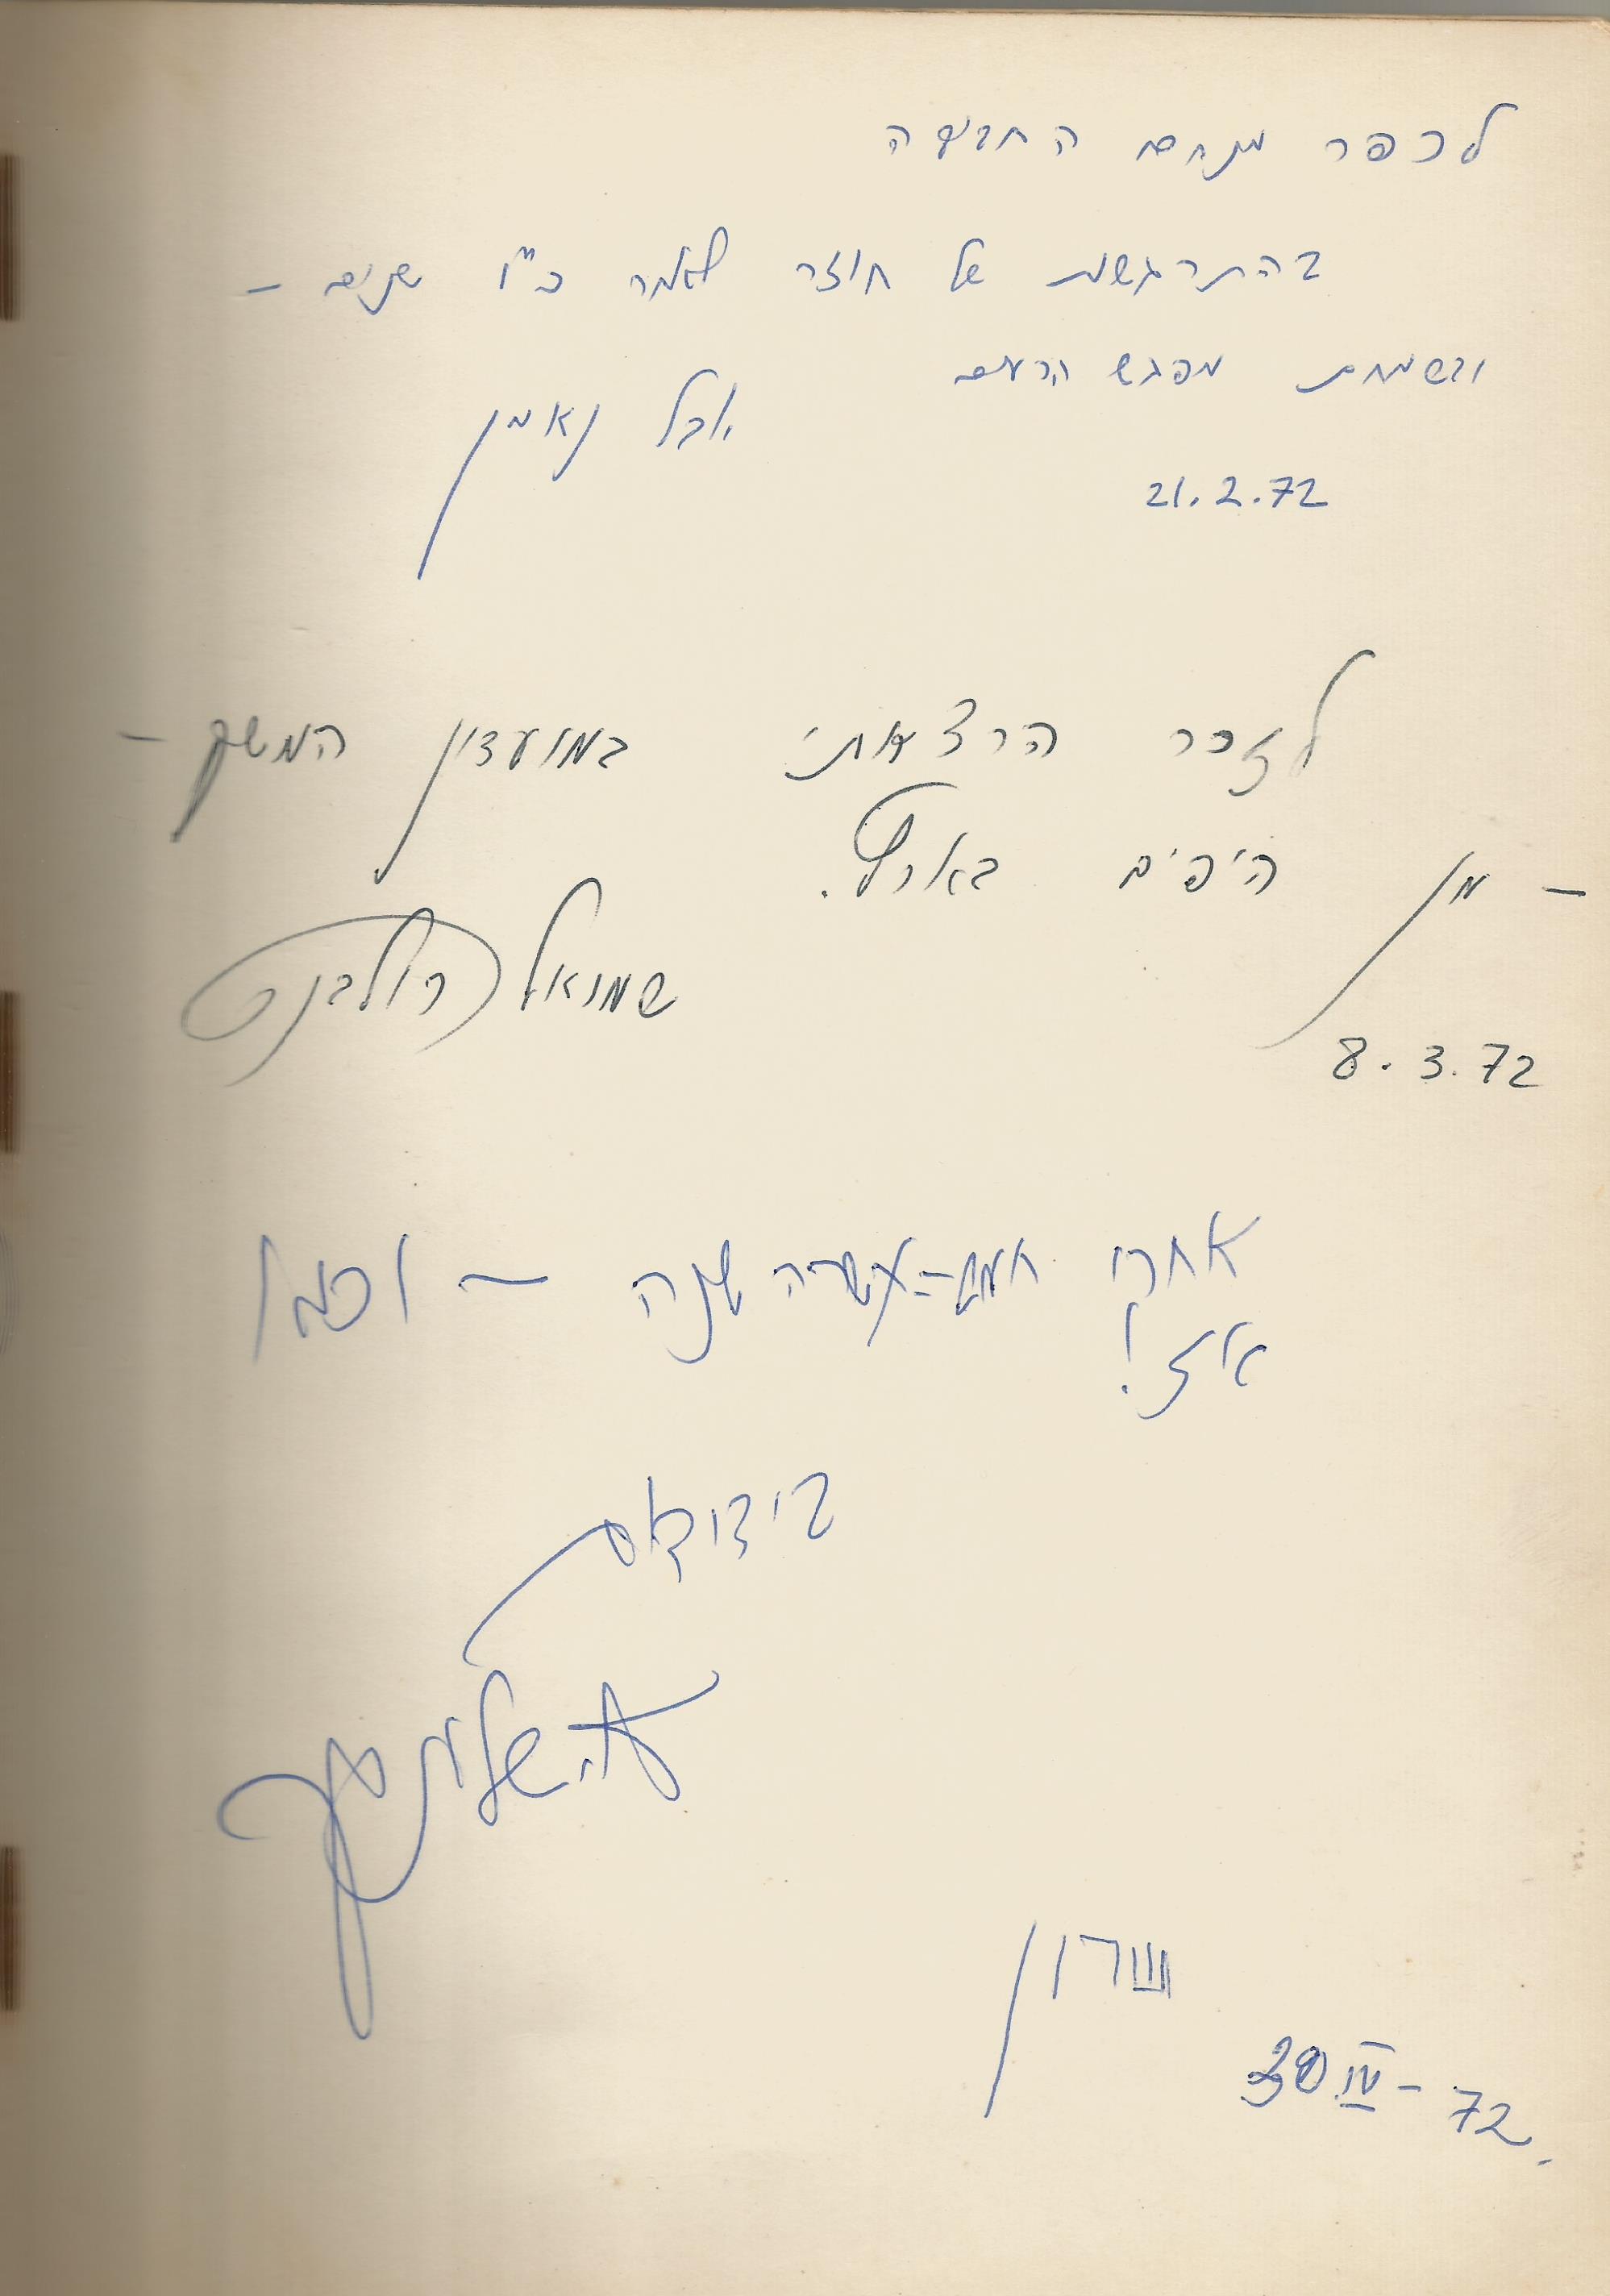 לכפר מנחם החביבה
בהתרגשות של חוזר לאחר כ"ו שנים –
ובשמחת מפגש הרעים
יובל נאמן
21.2.72
לזכר הרצאתי במועדון המשק –
– מן היפים בארץ.
שמואל רולבנט
8.3.72
אחרי חמש-עשרה שנה – וכמו
אז!
בידידות
שרון
30 IV – 72.